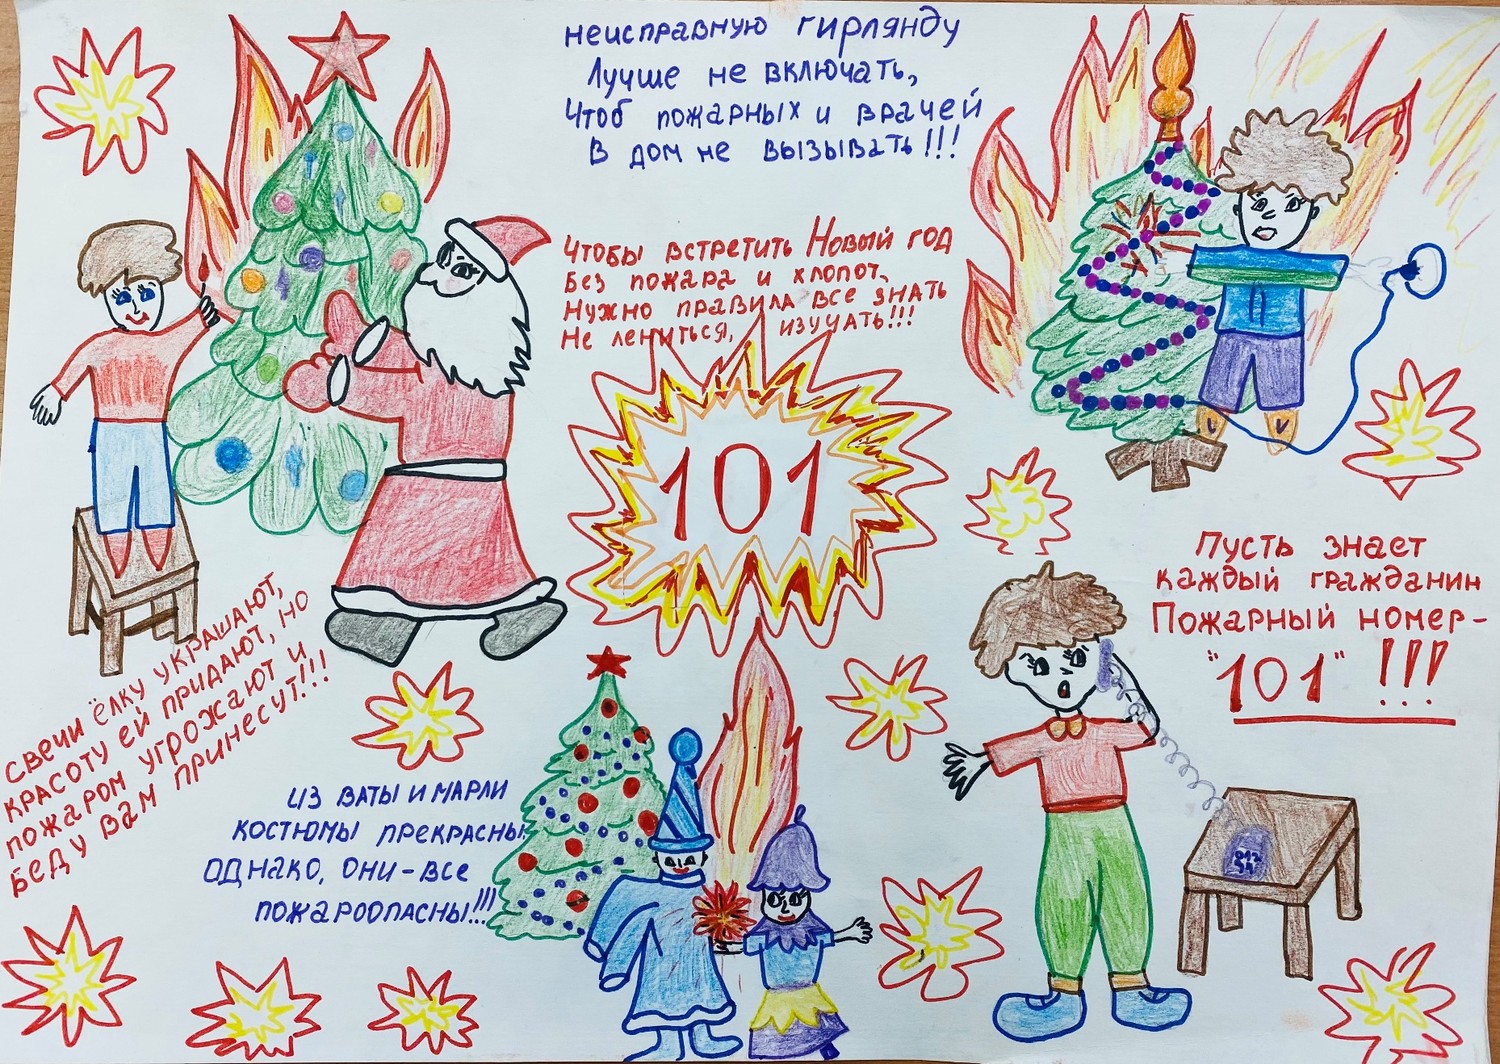 неисправную гирлянду
Лучше не включать,
Чтоб пожарных и врачей
В дом не вызывать!!!
Чтобы встретить Новый год
Без пожара и хлопот,
Нужно правила все знать
Не лениться, изучать!!!
101
Свечи ёлку украшают,
красоту ей придают, но
пожаром угрожают и
беду вам принесут!!!
Из ваты и марли
костюмы прекрасны
однако, они-все
пожароопасны!!!
Пусть знает
каждый гражданин
Пожарный номер-
"101" !!!